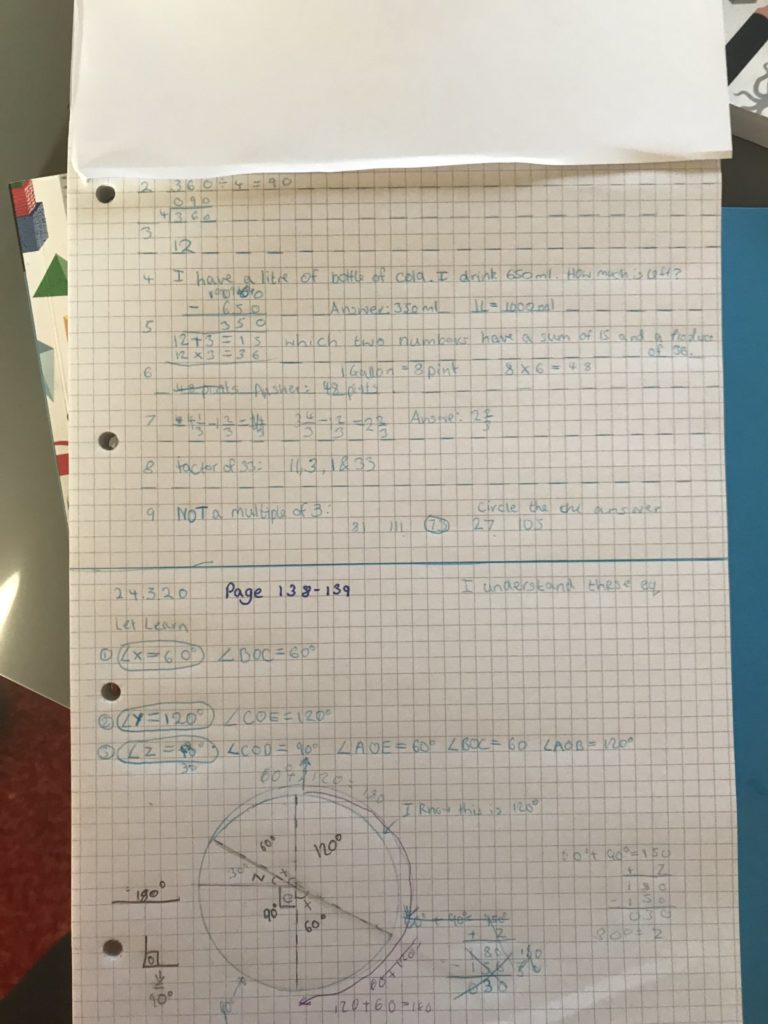 2 360 ÷ 4 = 90
090
4 360
3
12
4 I have a litre of bottle of cola. I drink 650ml. How much is left?
- 650 Answer: 350ml 1L = 1000ml
350
5
12 + 3 = 15 which two numbers have a sum of 15 and a product
12 × 3 = 36 of 36.
6 1 Gallon = 8 pint 8 × 6 = 48
48 pints Answer: 48 pints
7 3 4/3 - 1 2/3 = 2 2/3 Answer: 2 2/3
8 factor of 33: 11, 3, 1 & 33
9 NOT a multiple of 3: Circle the answer
81 111 73 27 105
24.3.20 Page 138-139 I understand these
Let Learn
① ∠X = 60° ∠BOC = 60°
② ∠Y = 120° ∠COE = 120°
③ ∠Z = ∠COD = 90° ∠AOE = 60° ∠BOC = 60 ∠AOB = 120°
30
60° + 120 = 180
I know this is 120°
60° 120°
30° Z X
90° 60°
180°
90°
60 + 120
120 + 60 = 180
60° + 90° = 150
+ 2
180
- 150
030
180
030